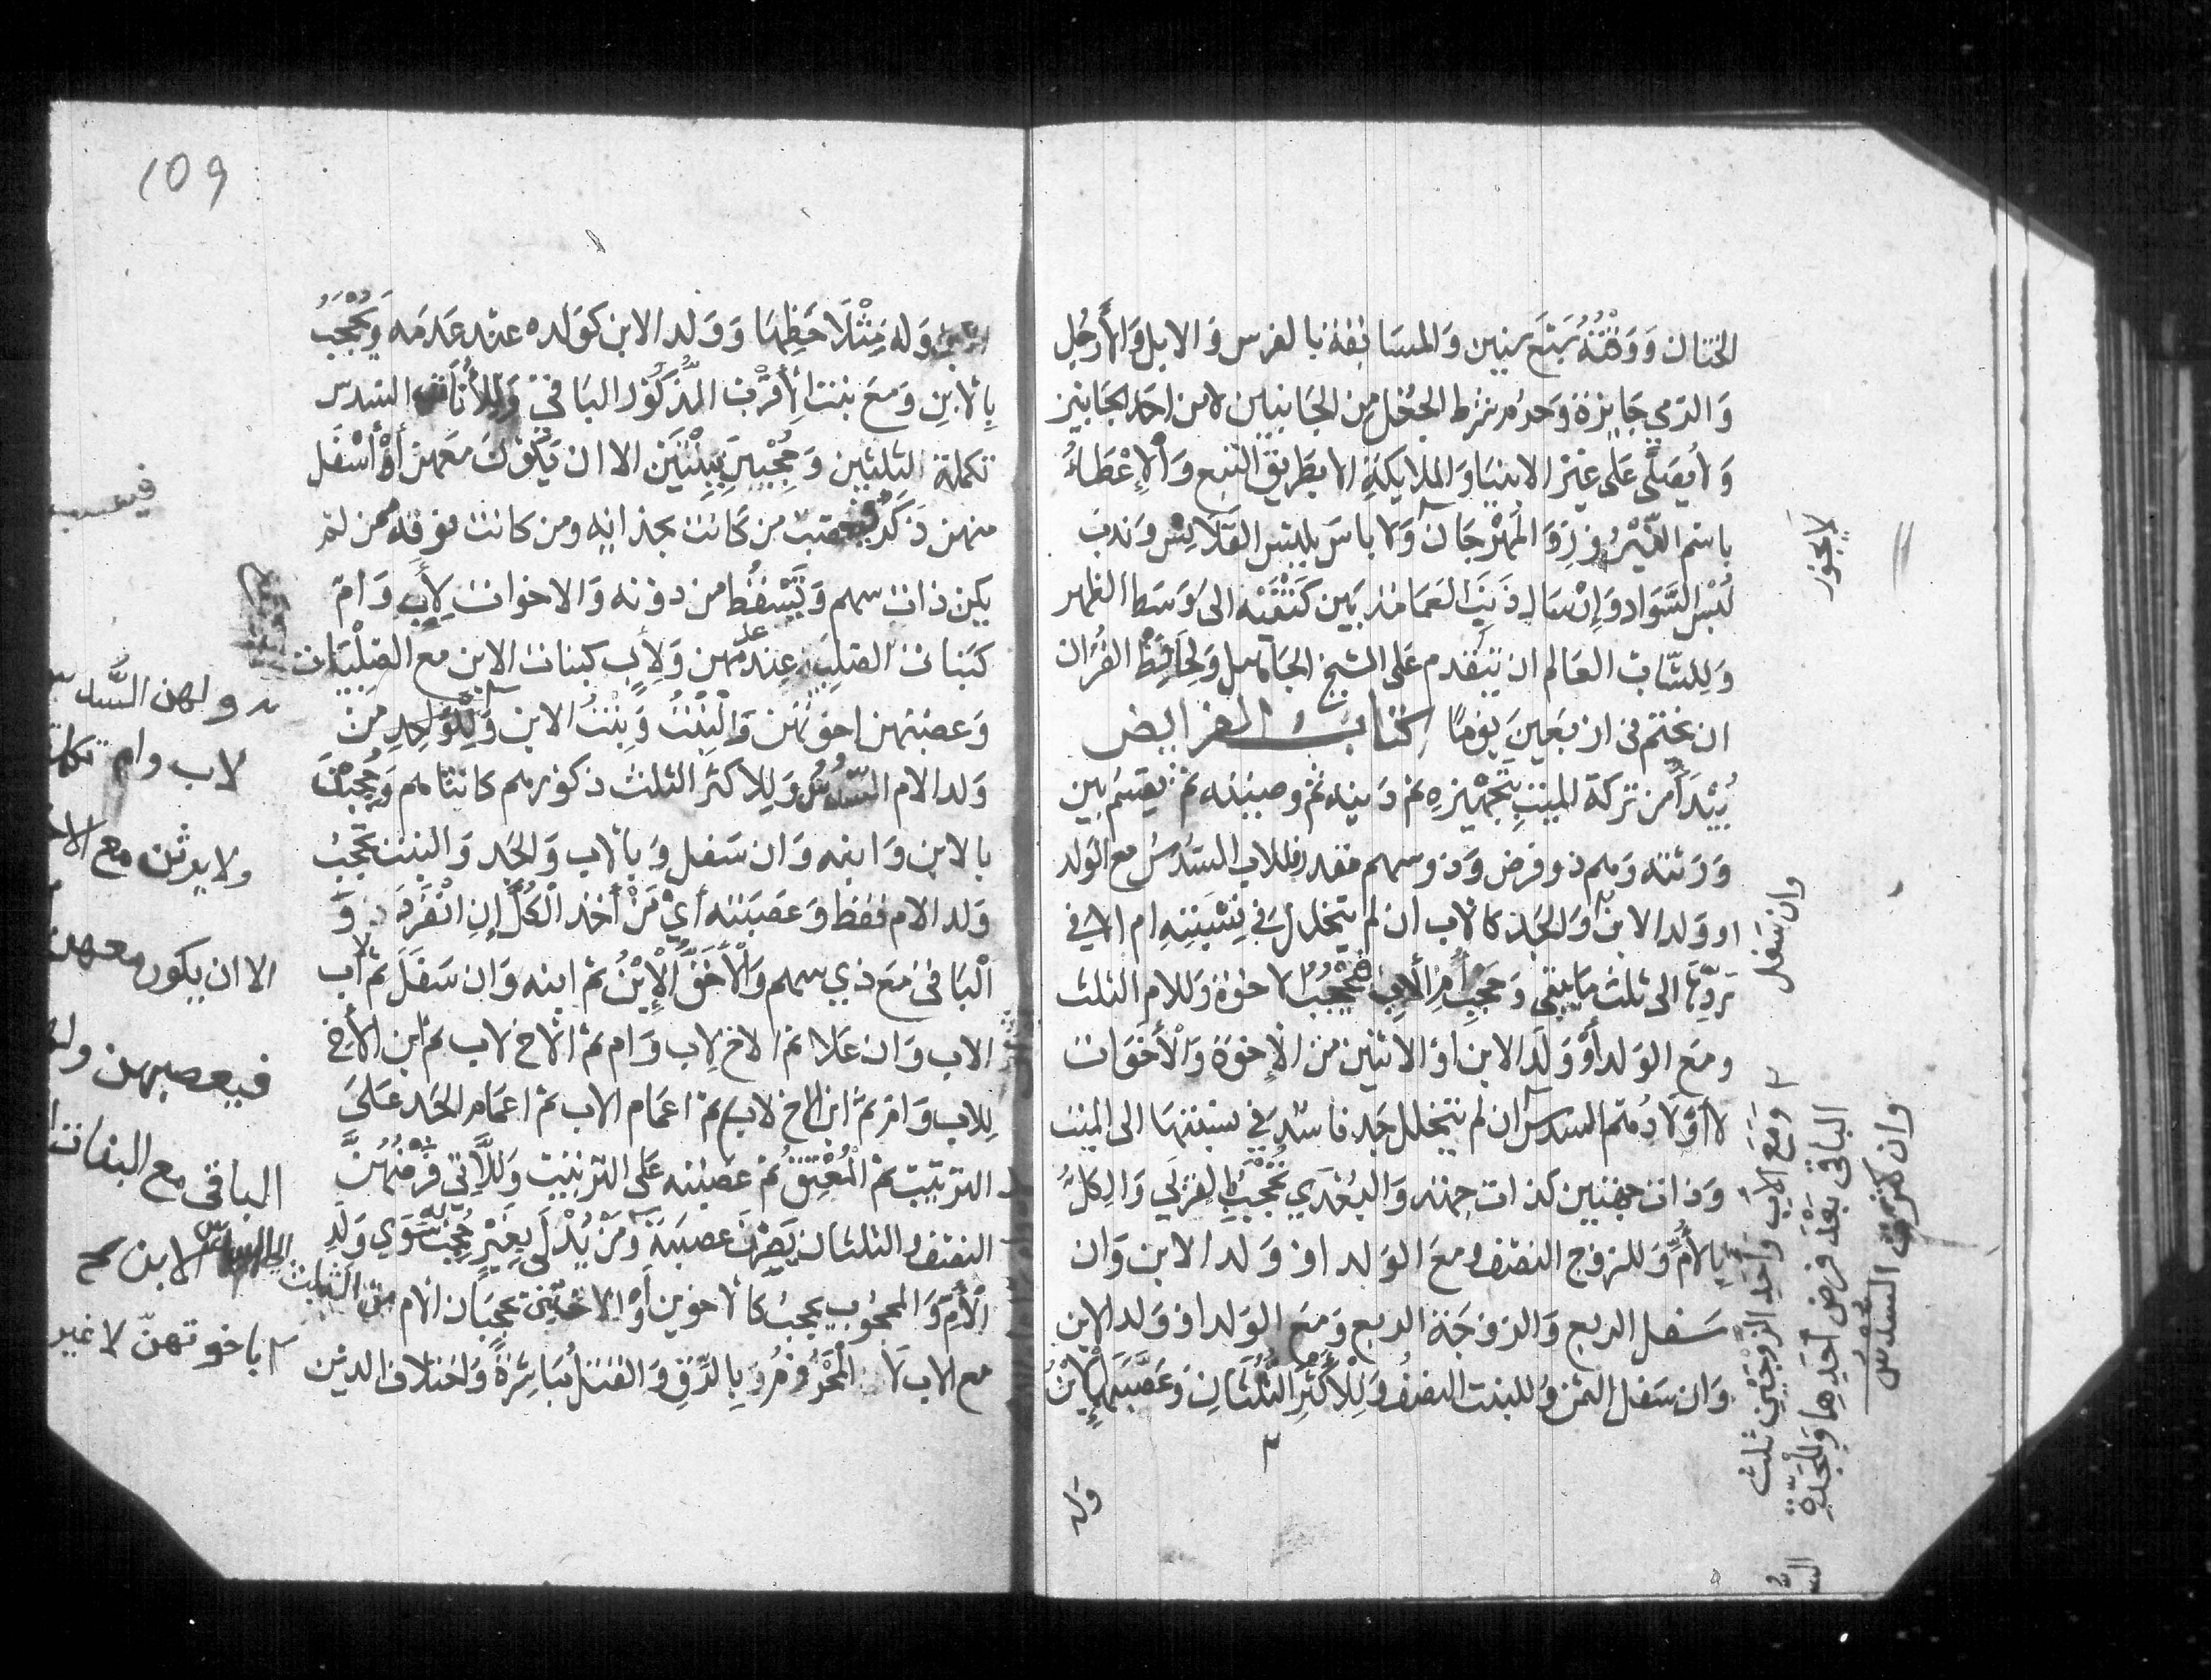 الختان ووقته سبع سنين والمسابقة بالفرس والابل والأرجل
والرمي جايزة وحرم شرط الجعل من الجانبين لا من احد الجانبين
ولا يصلى على غير الانبيا والملايكة الا بطريق التبع والإعطاء
باسم النيروز والمهرجان ولا باس بلبس القلانس وندب
لبس السواد وإرسال ذنب العمامة بين كتفيه الى وسط الظهر
وللشاب العالم ان يتقدم على الشيخ الجاهل ولحافظ القران
ان يختم في اربعين يوما كتاب الفرايض
يبدأ من تركة الميت بتجهيزه ثم دينه ثم وصيته ثم يقسم بين
ورثته وهم ذو فرض وذو سهم مقدر فللاب السدس مع الولد
او ولد الابن والجد كالاب ان لم يتخلل في نسبته ام الا في
ردها الى ثلث ما يبقى وحجب أم الأب فيحجب الاخوة وللام الثلث
ومع الولد أو ولد الابن او الاثنين من الإخوة والأخوات
لا أولادهم السدس ان لم يتخلل جد فاسد في نسبتها الى الميت
وذات جهتين كذات جهة والبعدى تحجب بالقربى والكل
بالأم وللزوج النصف ومع الولد او ولد الابن وان
سفل الربع والزوجة الربع ومع الولد او ولد الابن
وان سفل الثمن وللبنت النصف وللأكثر الثلثان وعصبها الإبن
وله
لا يجوز
وان سفل
ومع الأب وأحد الزوجين ثلث
الباقي بعد فرض أحدهما وللجدة
وان كثرت السدس
109
وله مثلا حظها وولد الابن كولده عند عدمه ويحجب
بالابن ومع بنت الأقرب الذكور الباقي وللأناث السدس
تكملة الثلثين وحجبن ببنتين الا ان يكون معهن أو أسفل
منهن ذكر فيعصب من كانت بحذائه ومن كانت فوقه ممن لم
يكن ذات سهم وتسقط من دونه والاخوات لأب وام
كبنات الصلب عند عدمهن ولأب كبنات الابن مع الصلبيات
وعصبتهن اخوتهن والبنت وبنت الابن وللواحد من
ولد الام السدس وللاكثر الثلث ذكورهم كانثاهم وحجبن
بالابن وابنه وان سفل وبالاب والجد والبنت تحجب
ولد الام فقط وعصبته أي من أخذ الكل إن انفرد و
الباقي مع ذي سهم والأحق الإبن ثم ابنه وان سفل ثم الاب
الاب وان علا ثم الاخ لاب وام ثم الاخ لاب ثم ابن الأخ
للاب وام ثم ابن الاخ لاب ثم اعمام الاب ثم اعمام الجد على
الترتيب ثم المعتق ثم عصبته على الترتيب وللاتي فرضهن
النصف والثلثان يصرن عصبة ومن يدلي بغير حجب به سوى ولد
الأم والمحجوب يحجب كالاخوين أو الاختين يحجبان الام من الثلث
مع الاب لا المحروم بالرق والقتل مباشرة واختلاف الدين
فيعصب
ولهن السدس
لاب وام
ولا يرثن مع
الا ان يكون معهن
فيعصبهن
الباقي مع البنات
الابن صح
باخوتهن لا غير